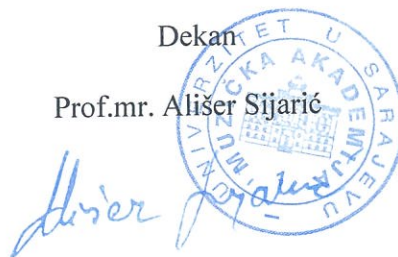 Dekan
Prof.mr. Ališer Sijarić
UNIVERZITET U SARAJEVU
MUZIČKA AKADEMIJA
Ališer Sijarić